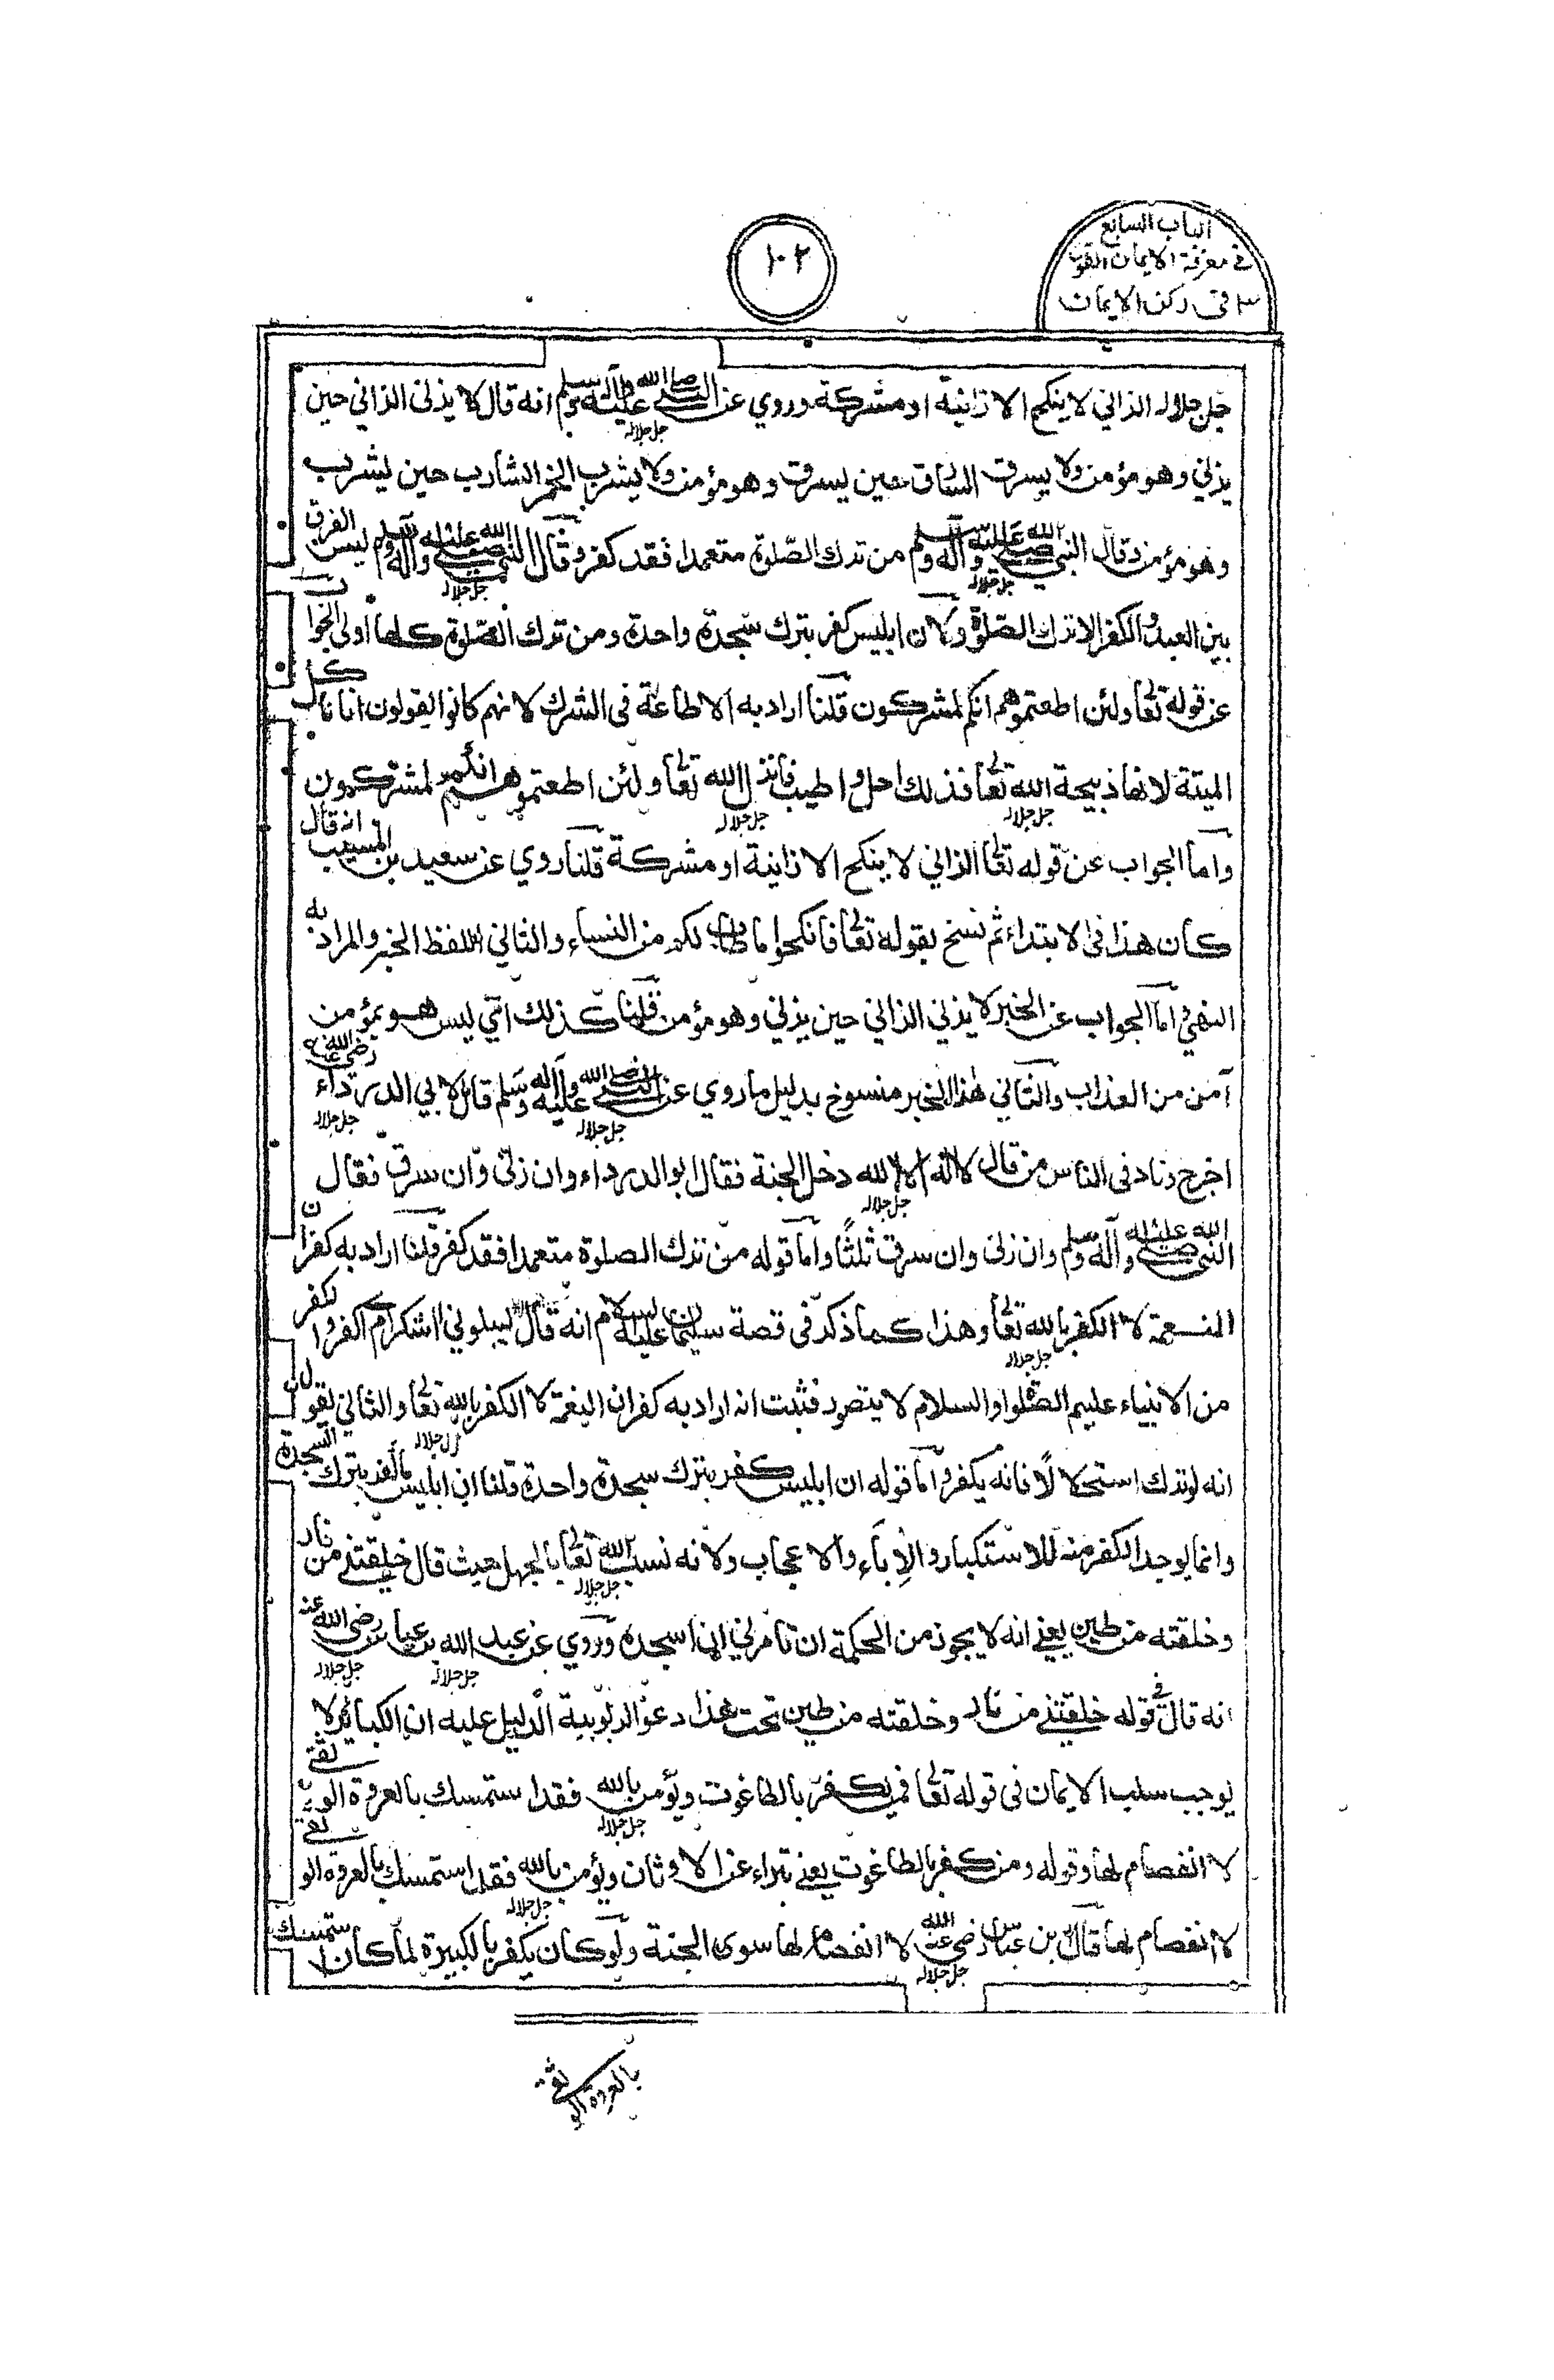 الباب السابع
في معرفة الايمان القول
٣ في ركن الايمان
١٠٢
جل جلاله الزاني لا ينكح الا زانية او مشركة وروي عن النبي صلى الله عليه وآله وسلم انه قال لا يزني الزاني حين
جل جلاله
يزني وهو مؤمن ولا يسرق السارق حين يسرق وهو مؤمن ولا يشرب الخمر الشارب حين يشرب
وهو مؤمن وقال النبي صلى الله عليه وآله وسلم من ترك الصلوة متعمدا فقد كفر وقال النبي صلى الله عليه وآله وسلم ليس الفرق
جل جلاله جل جلاله
بين العبد والكفر الا ترك الصلوة ولان ابليس كفر بترك سجدة واحدة ومن ترك الصلوة كلها أولى الجواب
عن قوله تعالى ولئن اطعتموهم انكم لمشركون قلنا اراد به الاطاعة فى الشرك لانهم كانوا يقولون انا نأكل
الميتة لانها ذبيحة الله تعالى فذلك احل واطيب فانزل الله تعالى ولئن اطعتموهم انكم لمشركون
جل جلاله جل جلاله
واما الجواب عن قوله تعالى الزاني لا ينكح الا زانية او مشركة قلنا روي عن سعيد بن المسيب انه قال
كان هذا فى الابتداء ثم نسخ بقوله تعالى فانكحوا ما طاب لكم من النساء والثاني اللفظ الخبر والمراد به
النهي واما الجواب عن الخبر لا يزني الزاني حين يزني وهو مؤمن قلنا كذلك اي ليس هو بمؤمن
آمن من العذاب والثاني هذا الخبر منسوخ بدليل ما روي عن النبي صلى الله عليه وآله وسلم قال لابي الدرداء رضى الله عنه
جل جلاله جل جلاله
اخرج وناد فى الناس من قال لا اله الا الله دخل الجنة فقال ابو الدرداء وان زنى وان سرق فقال
جل جلاله
النبي صلى الله عليه وآله وسلم وان زنى وان سرق ثلثا واما قوله من ترك الصلوة متعمدا فقد كفر قلنا اراد به كفران
النعمة لا الكفر بالله تعالى وهذا كما ذكر فى قصة سليمان عليه السلام انه قال ليبلوني ااشكر ام اكفر والكفر
جل جلاله
من الانبياء عليهم الصلوة والسلام لا يتصور فثبت انه اراد به كفران النعمة لا الكفر بالله تعالى والثاني لقول
جل جلاله
انه لو ترك استحلالا فانه يكفر واما قوله ان ابليس كفر بترك سجدة واحدة قلنا ان ابليس ما كفر بترك السجدة
وانما يوجد الكفر منه للاستكبار والإباء والاعجاب ولانه نسب الله تعالى بالجهل حيث قال خلقتنى من نار
جل جلاله
وخلقته من طين يعنى انه لا يجوز من الحكمة ان تأمرني ان اسجده وروي عن عبد الله بن عباس رضى الله عنه
جل جلاله جل جلاله
انه قال فى قوله خلقتنى من نار وخلقته من طين تحت هذا دعوّ الربوبية الدليل عليه ان الكبائر لا
يوجب سلب الايمان فى قوله تعالى فمن يكفر بالطاغوت ويؤمن بالله فقد استمسك بالعروة الوثقى
جل جلاله
لا انفصام لها وقوله ومن كفر بالطاغوت يعنى تبراء عن الاوثان ويؤمن بالله فقد استمسك بالعروة الوثقى
جل جلاله
لا انفصام لها قال بن عباس رضى الله عنه لا انفصام لها سوى الجنة ولو كان يكفر بالكبيرة لما كان استمسك
جل جلاله
بالعروة الوثقى